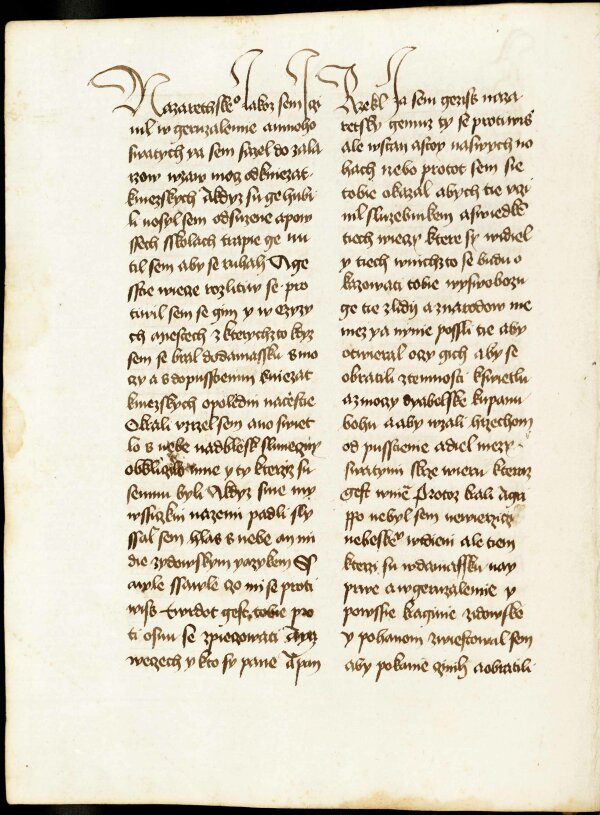 Nazarethskeº Jakoz sem czi
nil w geruzalemie amnoho
swatych ya sem sazel do zala
rzow wzaw mocz od kniezat
kniezskych Akdyz su ge hubi
li nosyl sem odsuzenie apow
ssech sskolach trapie ge nu
til sem aby se ruhali Age
sstie wiecze rozlitiw se pro
tiwil sem se gim y w czyzy
ch miestech z kterychzto kdyz
sem se bral dodamassku s mo
czy a s dopusstienim kniezat
kniezskych opoledni nacestie
Okrali vzrzel sem ano swiet
lo s nebe nadblesk sluneczny
obklicilo mne y ty kterziz su
semnu byli Akdyz sme my
wssickni nazemi padli sly
ssal sem hlas s nebe an mi
die zydowskym yazykem S
awle ssawle czo mi se proti
wiss Twrdot gest tobie pro
ti osnu se zpieczowati Ayaz
weczech y kto sy pane A pan
Rzekl Ja sem geziss naza
retsky gemuz ty se protiwiss
ale wstan astoy naswych no
hach nebo protot sem sie
tobie okazal abych tie vczi
nil sluzebnikem aswiedkē
tiech wieczy ktere sy widiel
y tiech wnichzto se budu o
kazowati tobie wyswobozu
ge tie zlidij a znarodow me
nez ya nynie possli tie aby
otwieral oczy gich aby se
obratili ztemnosti kswietlu
azmoczy dyabelske kupanu
bohu aaby wzali hrzechom
od pusstienie adiel mezy
swatymi skrze wieru kteraz
gest wmē Protoz krali Agri
ppo nebyl sem newierziczy
nebeskeº widieni ale tiem
kterzi su wdamassku nay
prwe awgeruzalemie y
powssie kraginie zidowske
y pohanom zwiestowal sem
aby pokanie czinili aobratili